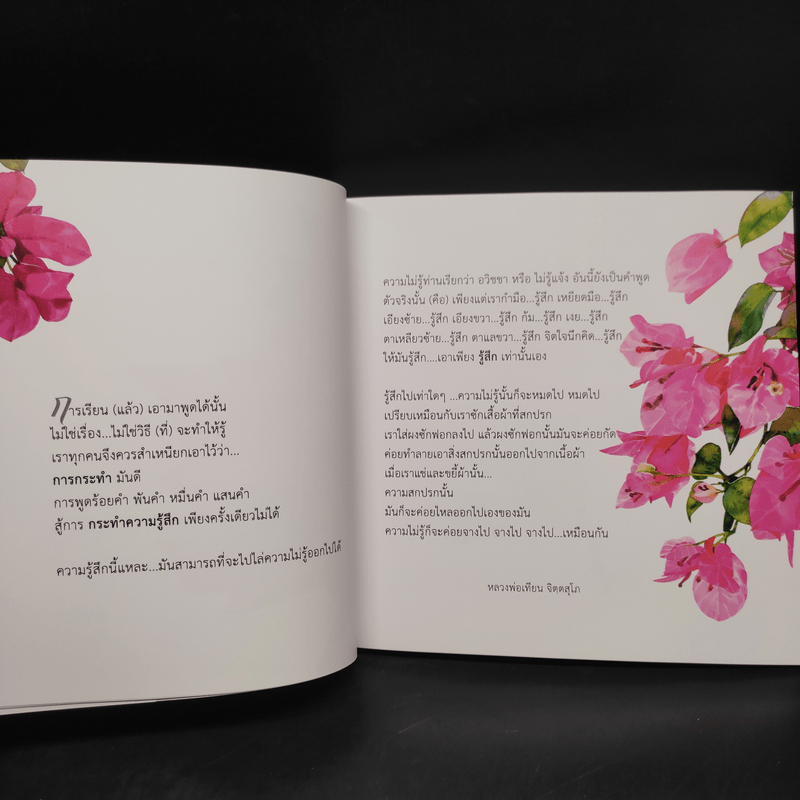 การเรียน (แล้ว) เอามาพูดได้นั้น
ไม่ใช่เรื่อง...ไม่ใช่วิธี (ที่) จะทำให้รู้
เราทุกคนจึงควรสำเหนียกเอาไว้ว่า...
การกระทำ มันดี
การพูดร้อยคำ พันคำ หมื่นคำ แสนคำ
สู้การ กระทำความรู้สึก เพียงครั้งเดียวไม่ได้
ความรู้สึกนี้แหละ...มันสามารถที่จะไปไล่ความไม่รู้ออกไปได้
ความไม่รู้ท่านเรียกว่า อวิชชา หรือ ไม่รู้แจ้ง อันนี้ยังเป็นคำพูด
ตัวจริงนั้น (คือ) เพียงแต่เรากำมือ...รู้สึก เหยียดมือ...รู้สึก
เอียงซ้าย...รู้สึก เอียงขวา...รู้สึก ก้ม...รู้สึก เงย...รู้สึก
ตาเหลียวซ้าย...รู้สึก ตาแลขวา...รู้สึก จิตใจนึกคิด...รู้สึก
ให้มันรู้สึก....เอาเพียง รู้สึก เท่านั้นเอง
รู้สึกไปเท่าใดๆ ...ความไม่รู้นั้นก็จะหมดไป หมดไป
เปรียบเหมือนกับเราซักเสื้อผ้าที่สกปรก
เราใส่ผงซักฟอกลงไป แล้วผงซักฟอกนั้นมันจะค่อยกัด
ค่อยทำลายเอาสิ่งสกปรกนั้นออกไปจากเนื้อผ้า
เมื่อเราแช่และขยี้ผ้านั้น...
ความสกปรกนั้น
มันก็จะค่อยไหลออกไปเองของมัน
ความไม่รู้ก็จะค่อยจางไป จางไป จางไป...เหมือนกัน
หลวงพ่อเทียน จิตฺตสุโภ